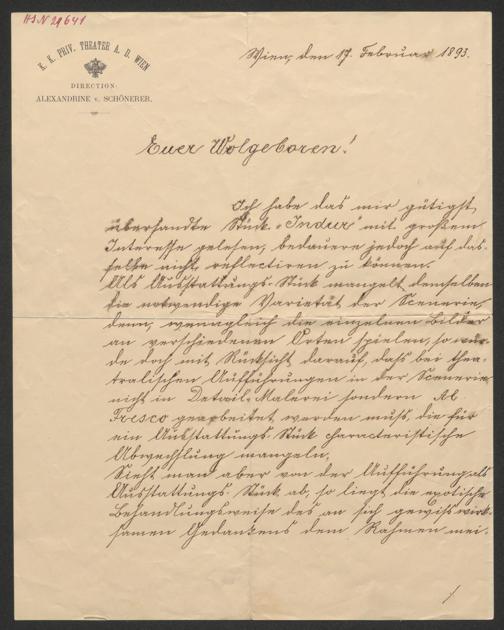 HS.N 29641
K. K. PRIV. THEATER A. D. WIEN
DIRECTION:
ALEXANDRINE v. SCHÖNERER.
Wien, den 17. Februar 1893.
Euer Wolgeboren!
Ich habe das mir gütigst
übersandte Stück „Indur“ mit großem
Interesse gelesen, bedauere jedoch auf das-
selbe nicht reflectiren zu können.
Als Ausstattungs-Stück mangelt demselben
die notwendige Varietät der Scenerie,
denn, wenngleich die einzelnen Bilder
an verschiedenen Orten spielen, so wür-
de doch mit Rücksicht darauf, dass bei thea-
tralischen Aufführungen in der Scenerie
nicht in Detail-Malerei sondern Al
Fresco gearbeitet werden muss, die für
ein Ausstattungs-Stück characteristische
Abwechslung mangeln.
Sieht man aber von der Aufführung als
Ausstattungs-Stück ab, so liegt die exotische
Behandlungsweise des an sich gewiss wirk-
samen Gedankens dem Rahmen mei-